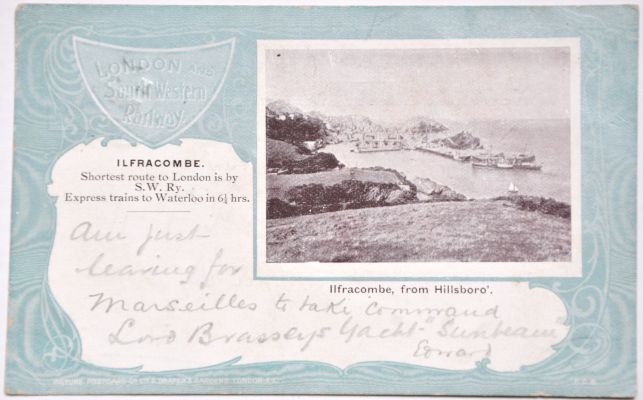 LONDON AND
South Western
Railway.
ILFRACOMBE.
Shortest route to London is by
S.W. Ry.
Express trains to Waterloo in 6¼ hrs.
Ilfracombe, from Hillsboro'.
Am just
leaving for
Marseilles to take command
Lord Brasseys Yacht "Sunbeam"
Edward
PICTURE POSTCARD CO LTD DRAPER'S GARDENS LONDON E.C.